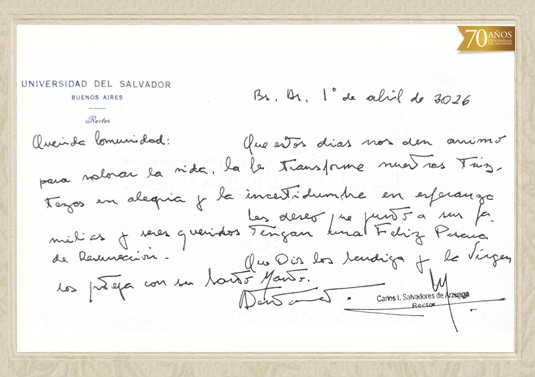 70 AÑOS
UNIVERSIDAD DEL SALVADOR
BUENOS AIRES
Rector
Bs. As. 1° de abril de 2026
Querida Comunidad: Que estos días nos den animo
para valorar la vida, la fe transforme nuestras tris-
tezas en alegria y la incertidumbre en esperanza
Les deseo que junto a sus fa
milias y seres queridos tengan una Feliz Pascua
de Resurrección. Que Dios los bendiga y la Virgen
los proteja con su Santo Manto.
Carlos I. Salvadores de Arzuaga
Rector